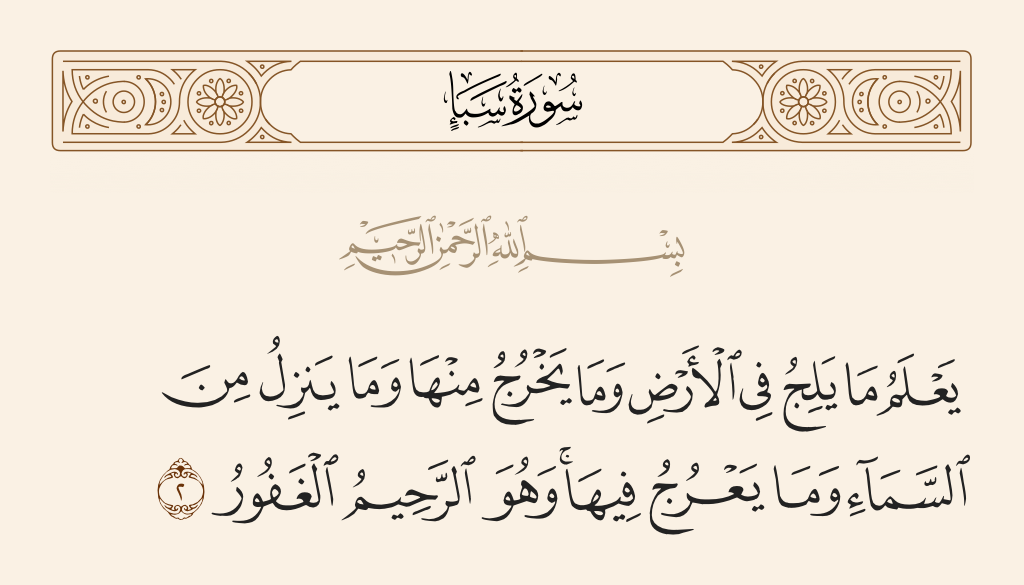 سُورَةُ سَبَإٍ
بِسْمِ ٱللَّهِ ٱلرَّحْمَٰنِ ٱلرَّحِيمِ
يَعْلَمُ مَا يَلِجُ فِى ٱلْأَرْضِ وَمَا يَخْرُجُ مِنْهَا وَمَا يَنزِلُ مِنَ
ٱلسَّمَآءِ وَمَا يَعْرُجُ فِيهَا ۚ وَهُوَ ٱلرَّحِيمُ ٱلْغَفُورُ ٢